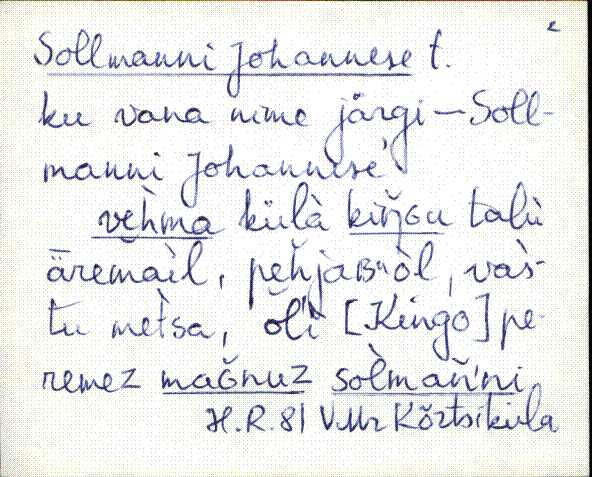 Sollmanni Johannese t.
ku vana nime järgi – Soll-
manni Johannese
vèhma külà kiŋ̀Gu talù
äremaìl, pehjaʙuòl, vas̀-
tu met̀sa, ol̀i [Kingo] pe-
remez maGnuz sol̀mań̀ni
H.R. 81 VMr Kõrtsiküla